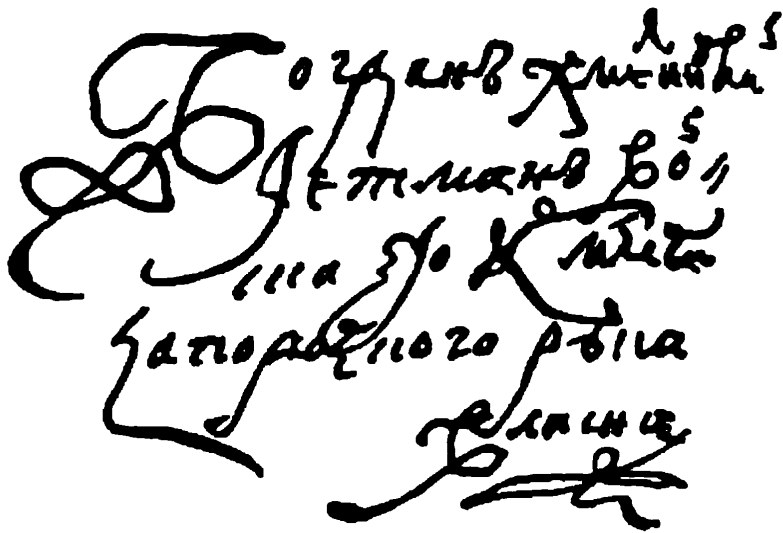 Богданъ Хмелницки
Гетманъ вои
ска его К милости
Запорозкого рꙋка
власна